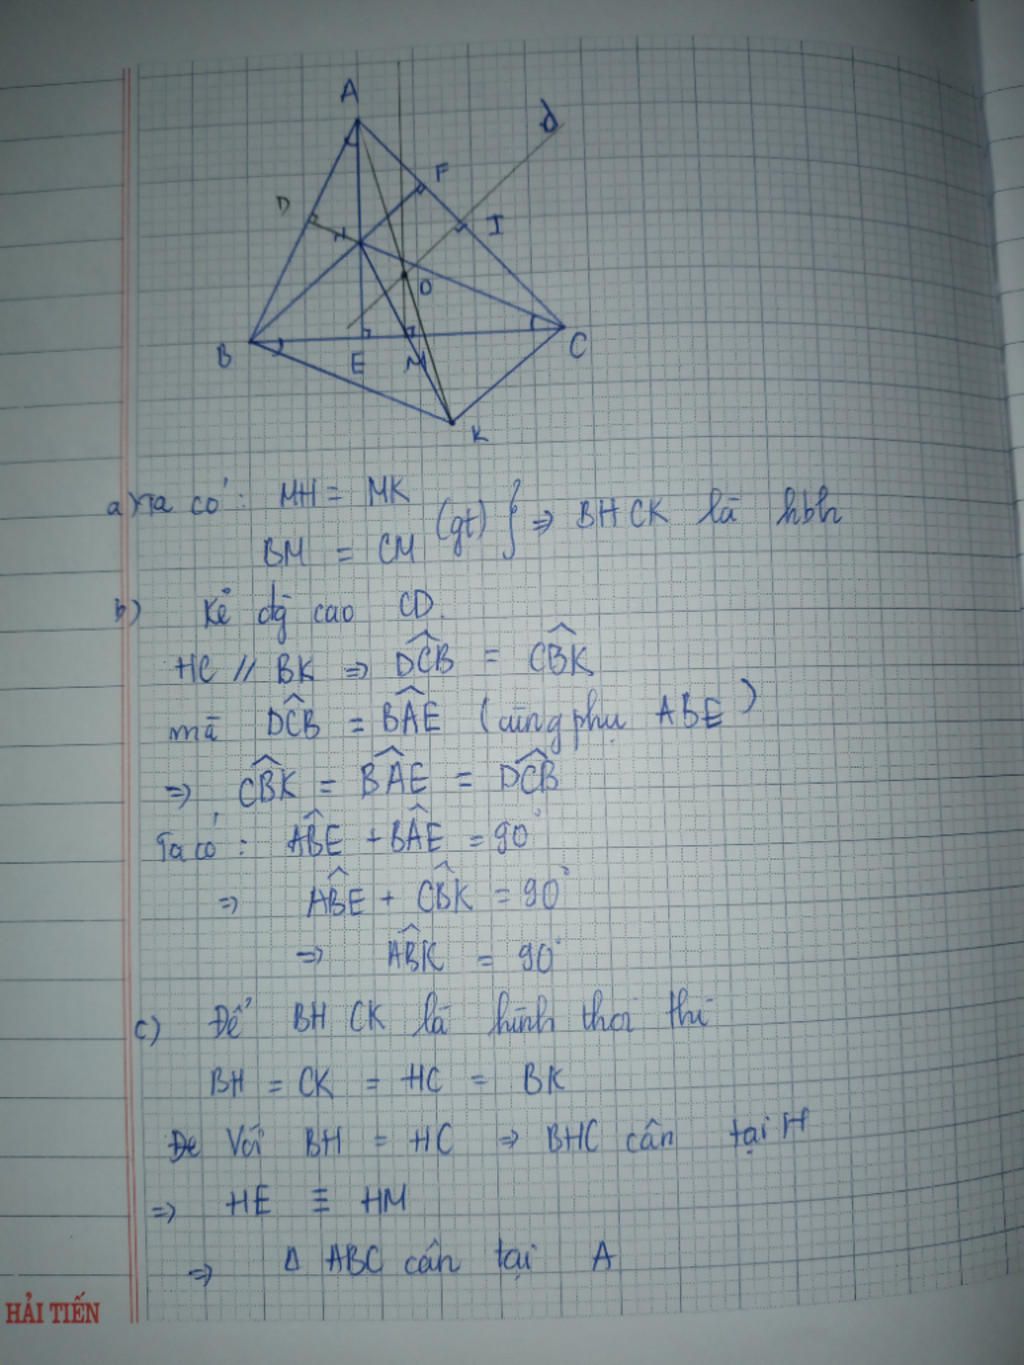 A
d
F
D
I
H
O
B
E
M
C
K
a) Ta có: MH = MK
BM = CM (gt) } => BHCK là hbh
b) Kẻ đg cao CD.
HC // BK => DCB = CBK
mà DCB = BAE (cùng phụ ABE)
=> CBK = BAE = DCB
Ta có: ABE + BAE = 90°
=> ABE + CBK = 90°
=> ABK = 90°
c) Để BHCK là hình thoi thì
BH = CK = HC = BK
Với BH = HC => BHC cân tại H
=> HE ≡ HM
=> Δ ABC cân tại A
HẢI TIẾN